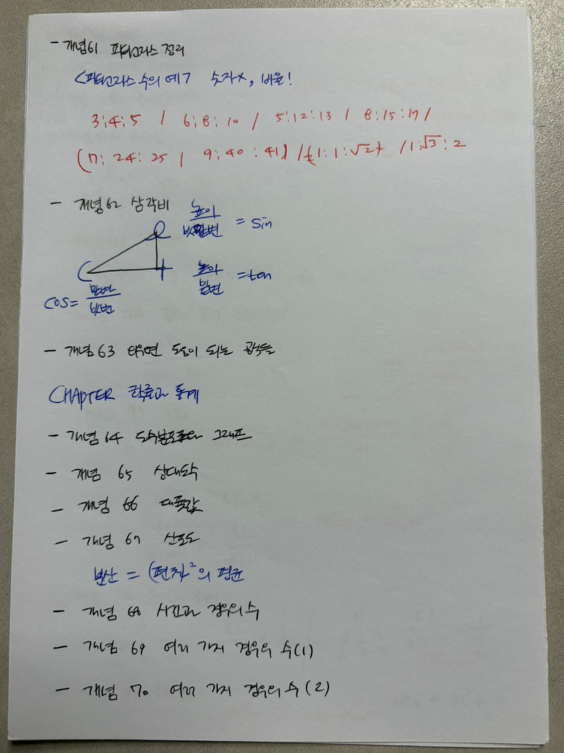 - 개념61 피타고라스 정리
<피타고라스 수의 예7 숫자x, 비율!
3:4:5 / 6:8:10 / 5:12:13 / 8:15:17 /
(7:24:25 / 9:40:41) / 1:1:√2 / 1:√3:2
- 개념62 삼각비
높이/빗변 = sin
높이/밑변 = tan
cos = 밑변/빗변
- 개념63 외우면 도움이 되는 공식들
CHAPTER 확률과 통계
- 개념64 도수분포표와 그래프
- 개념 65 상대도수
- 개념 66 대푯값
- 개념 67 산포도
분산 = (편차)²의 평균
- 개념 68 사건과 경우의 수
- 개념 69 여러 가지 경우의 수(1)
- 개념 70 여러 가지 경우의 수(2)